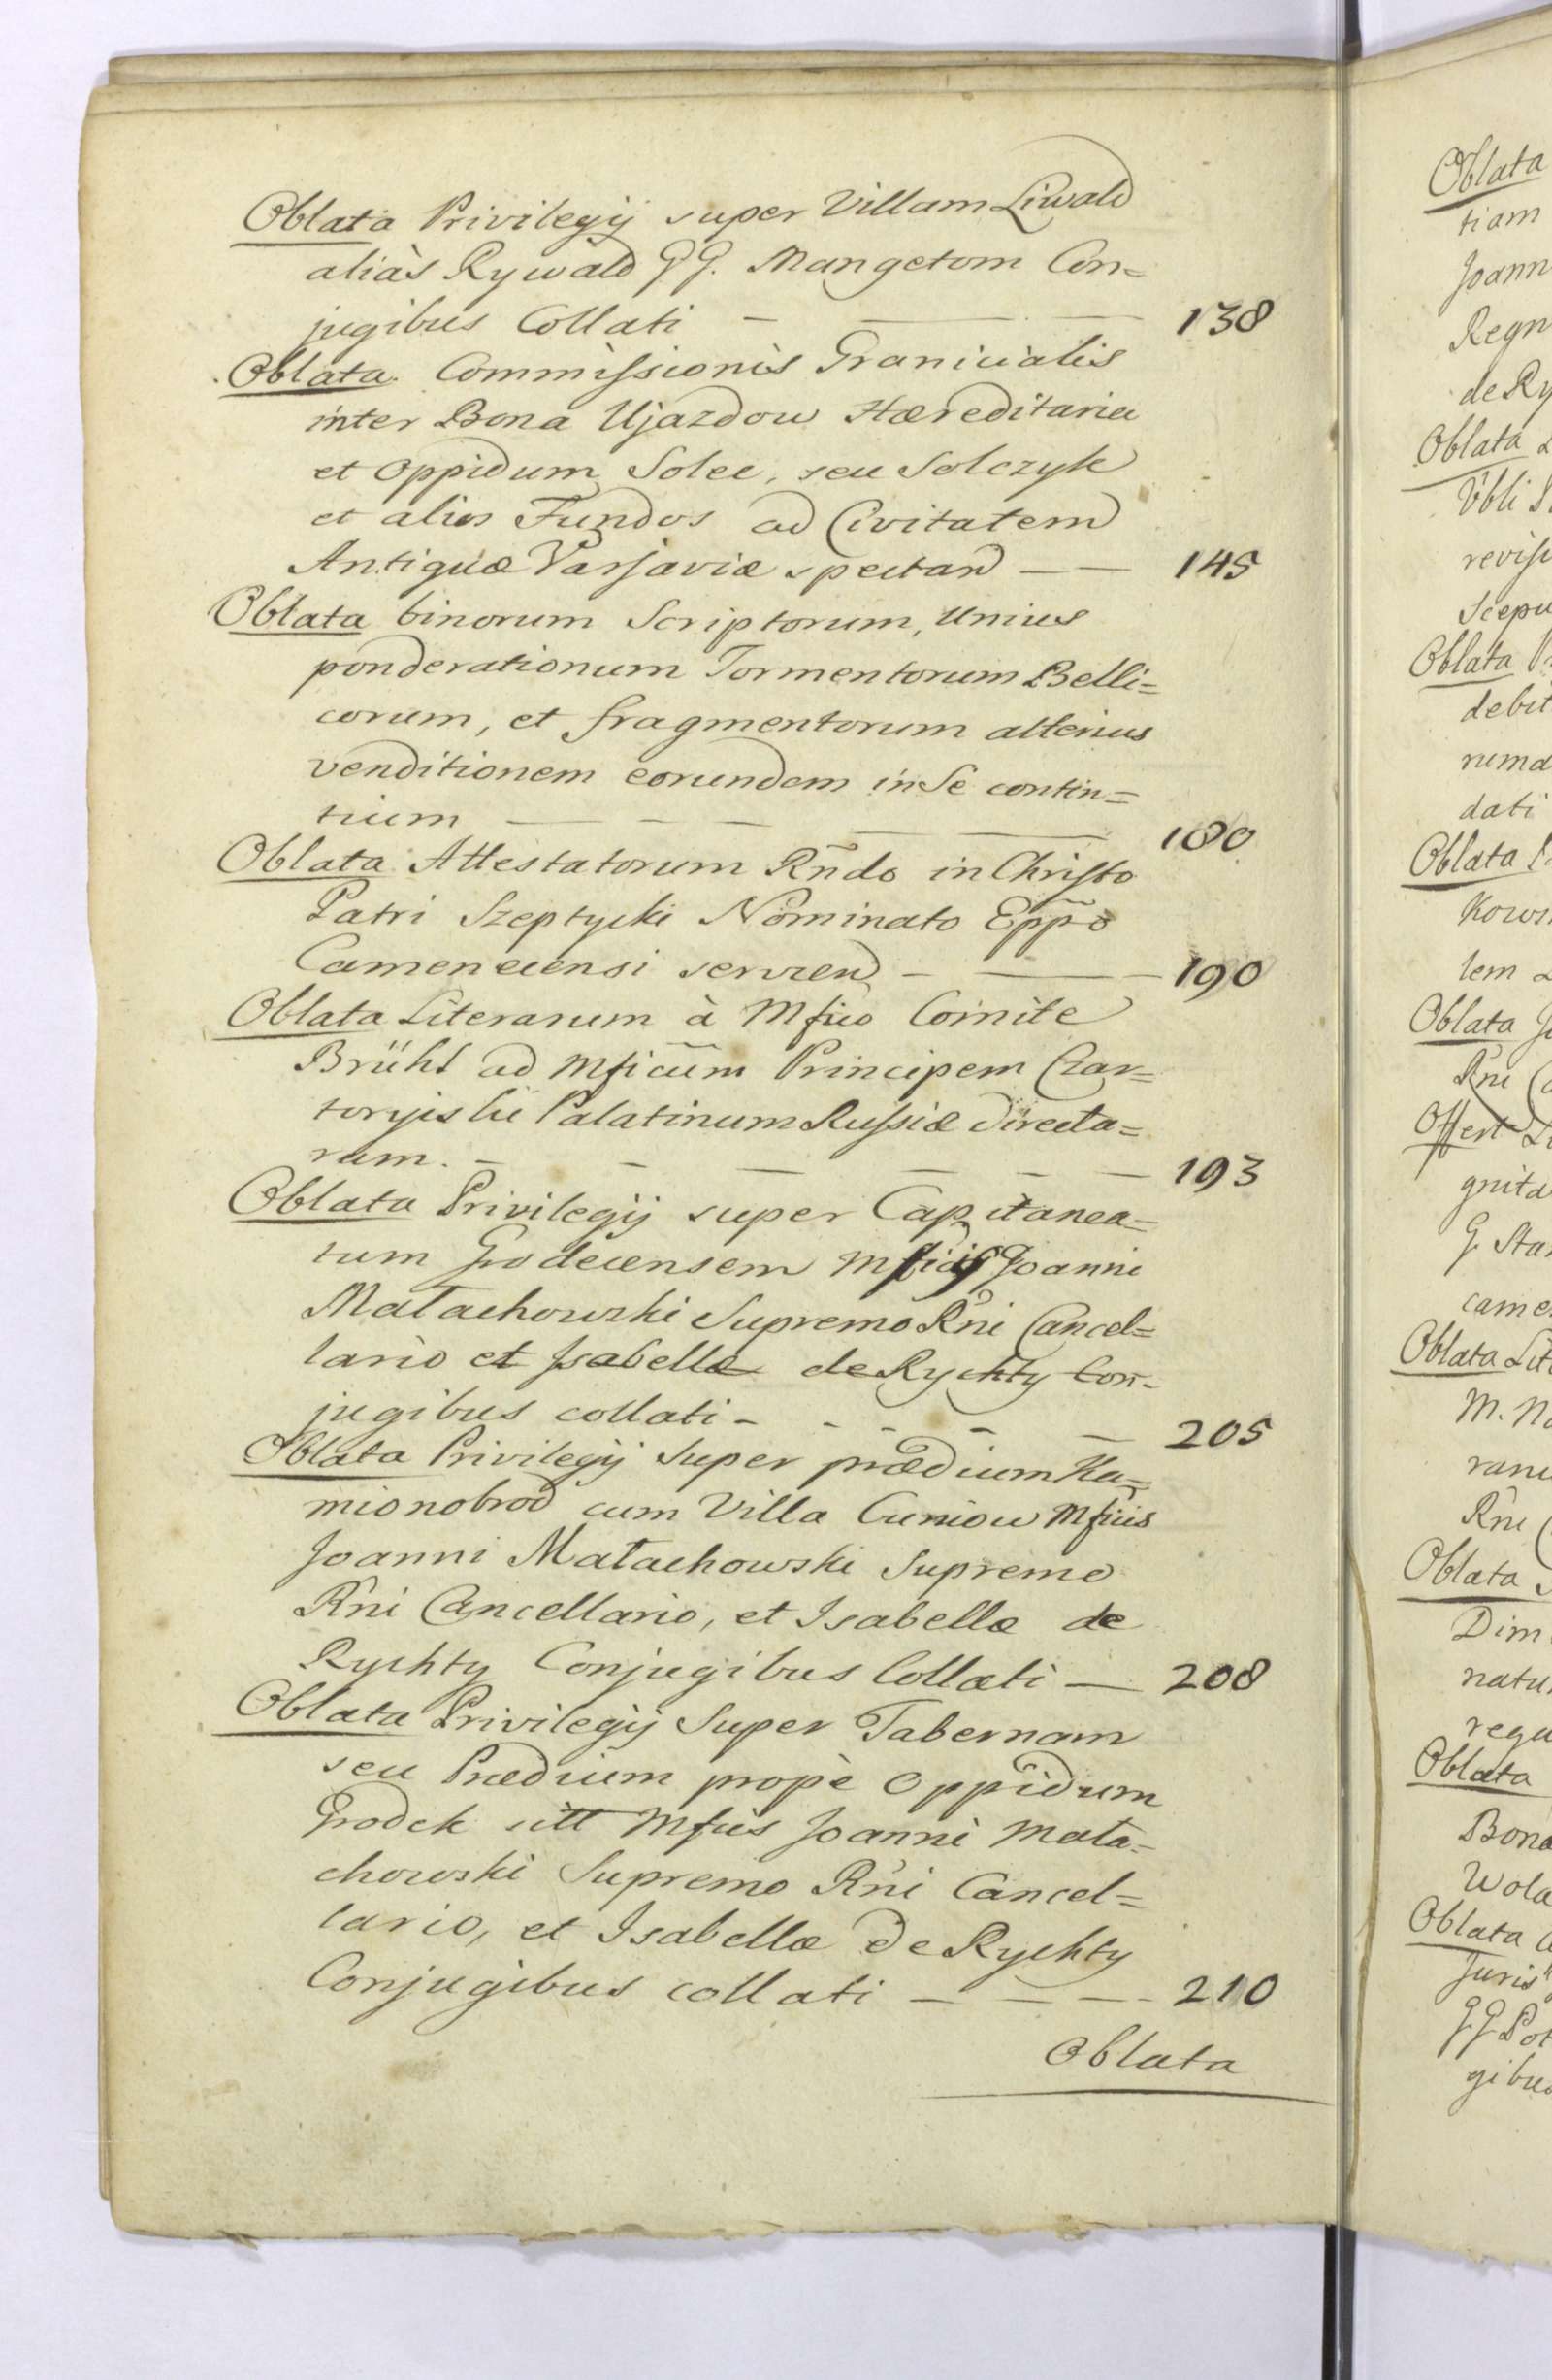 Oblata Privilegij super Villam Liwald
aliàs Rywald GG. Mangetom Con=
jugibus Collati — — — 138
Oblata Commissionis Granicialis
inter Bona Ujazdow Hæreditaria
et Oppidum Solec, seu Solczyk
et alios Fundos ad Civitatem
Antiquæ Varsaviæ spectand — — 145
Oblata binorum Scriptorum, Unius
ponderationum Tormentorum Belli=
corum, et fragmentorum alterius
venditionem eorundem in Se contin=
tium — — — — — 180
Oblata Attestatorum Rndo in Christo
Patri Szeptycki Nominato Eppo
Camenecensi servien̄d — — 190
Oblata Literarum à Mfico Comite
Brühl ad Mficum Principem Czar=
toryiski Palatinum Russiæ directa=
rum. — — — — — — 193
Oblata Privilegij super Capitanea=
tum Grodecensem Mficis Joanni
Małachowski Supremo Rni Cancel=
lario et Isabellæ de Rychty Con=
jugibus collati — — — — — 205
Oblata Privilegij Super prædium Ka=
mionobrod cum Villa Cuniow Mficis
Joanni Małachowski Supremo
Rni Cancellario, et Isabellæ de
Rychty Conjugibus Collati — 208
Oblata Privilegij Super Tabernam
seu Prædium propè Oppidum
Grodek sitt Mficis Joanni Mała=
chowski Supremo Rni Cancel=
lario, et Isabellæ de Rychty
Conjugibus collati — — — 210
Oblata
Oblata
tiam
Joann
Regn
de Ry
Oblata
revis
Scepu
Oblata
debit
dati
Oblata
Kows
lem
Oblata
Rni
Offert
gnita
G. Sta
came
Oblata Lit
M. No
Rni
Oblata
Dim
natu
regu
Oblata
Bona
Wola
Oblata
Juris
GG Pot
gibus